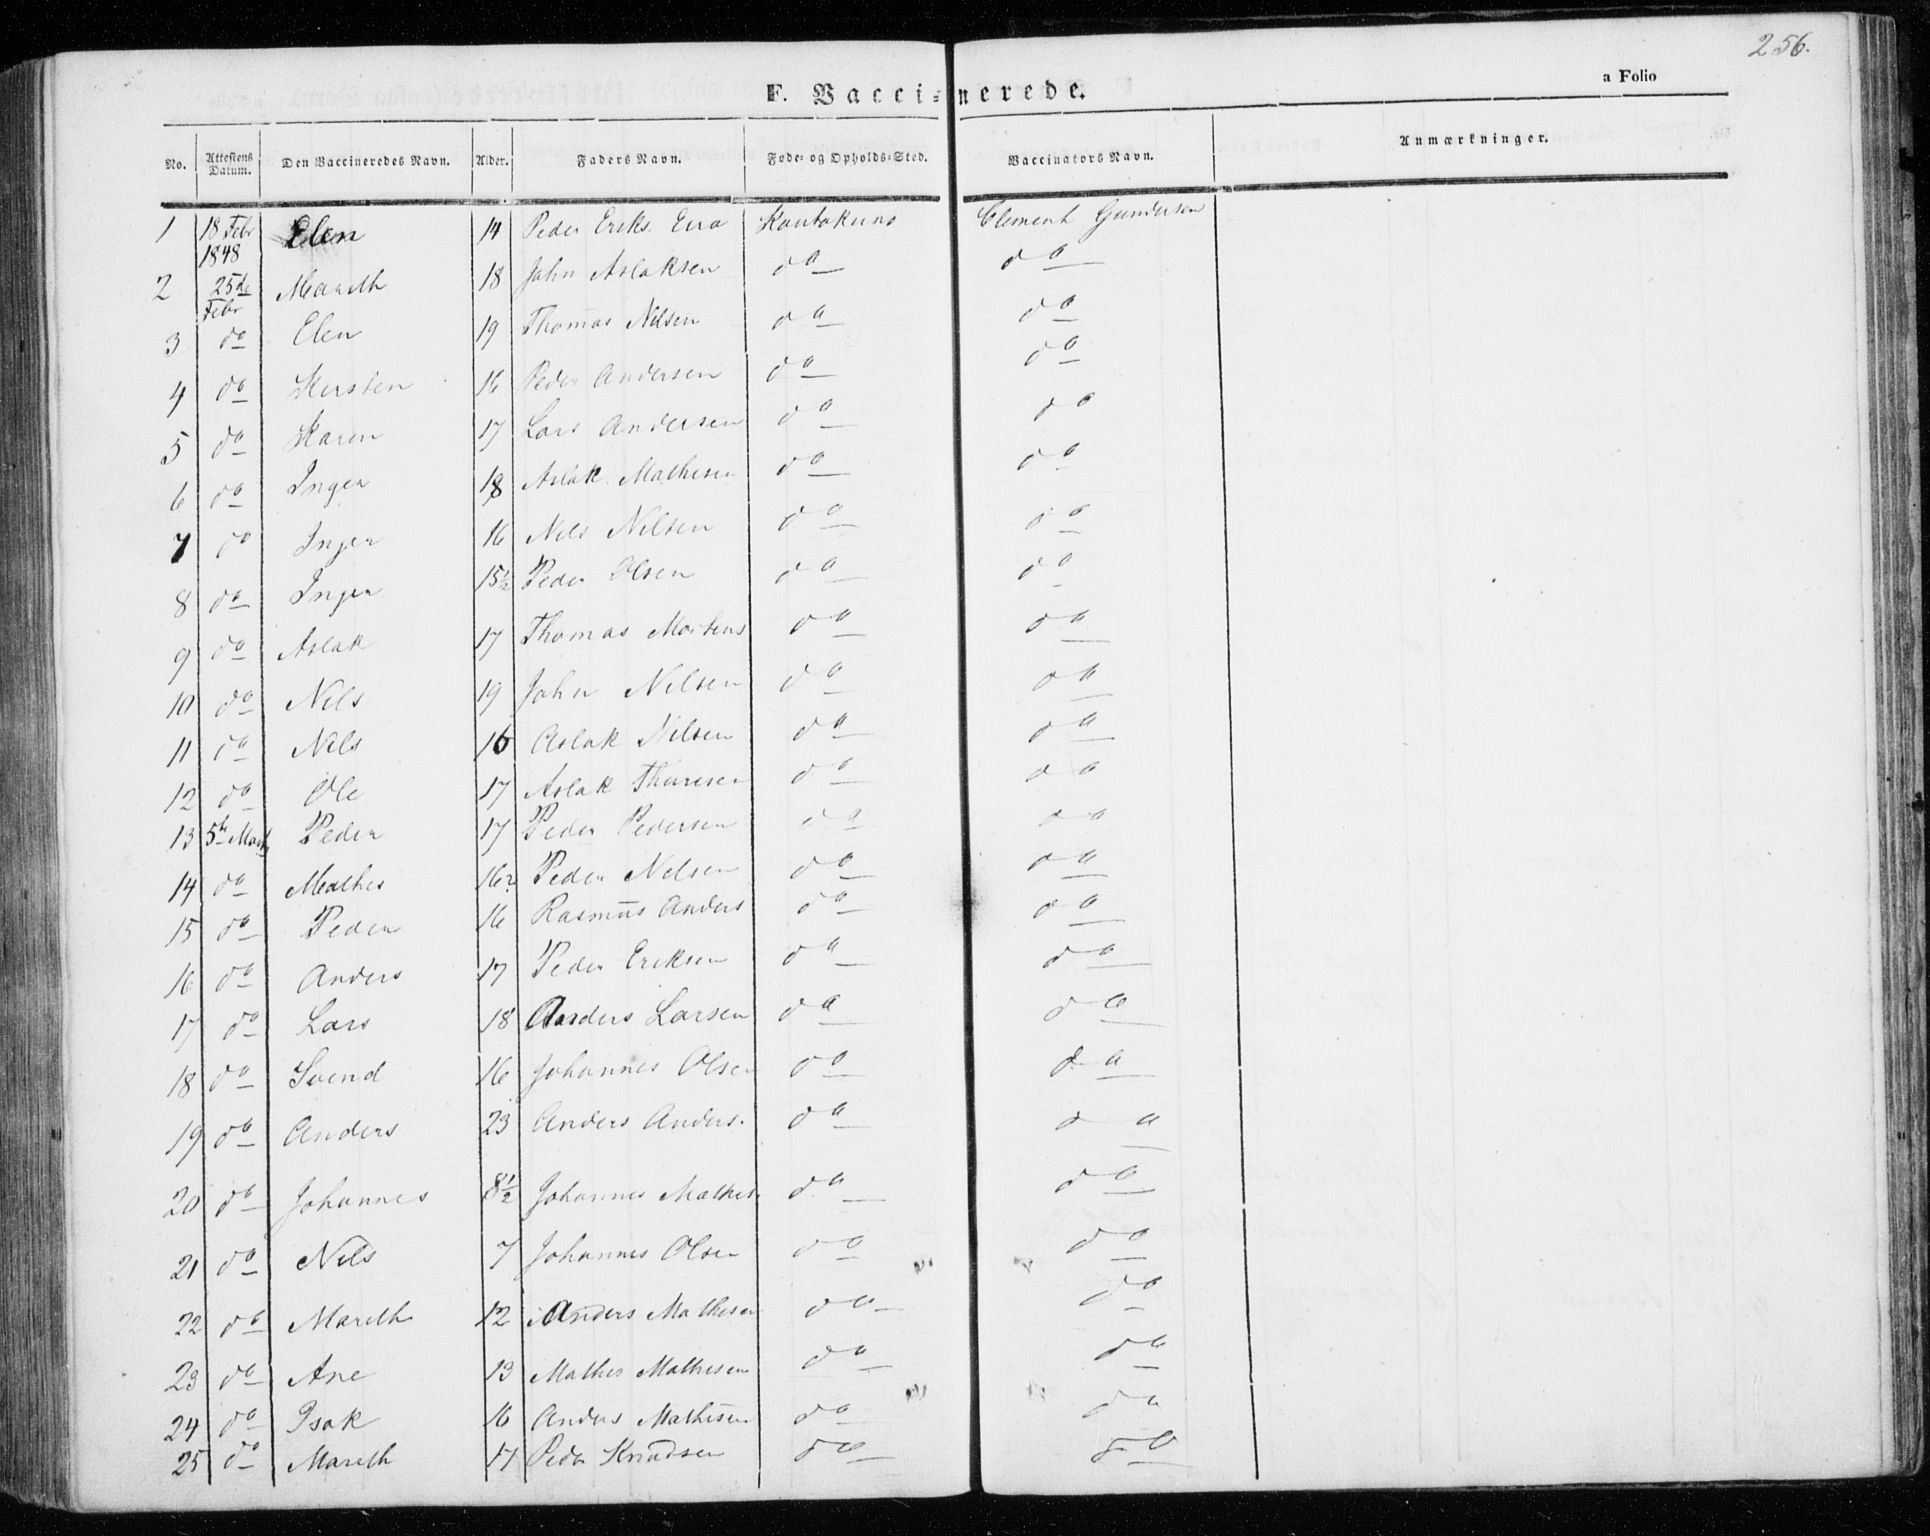 256.
F. Vaccinerede.
a Folio
No. Attestens Datum. Den Vaccineredes Navn. Alder. Faders Navn. Føde- og Opholds-Sted. Vaccinators Navn. Anmærkninger.
1 18 Febr 1848 Elen 14 Peder Eriks. Eira Koutokuno Clement Gundersen
2 25de Febr Mareth 18 John Aslaksen do do
3 do Elen 19 Thomas Nilsen do do
4 do Kirsten 16 Peder Andersen do do
5 do Karen 17 Lars Andersen do do
6 do Inger 18 Aslak Mathisen do do
7 do Inger 16 Nils Nilsen do do
8 do Inger 15½ Peder Olsen do do
9 do Aslak 17 Thomas Mortens do do
10 do Nils 19 John Nilsen do do
11 do Nils 16 Aslak Nilsen do do
12 do Ole 17 Aslak Thuresen do do
13 5te Marts Peder 17 Peder Pedersen do do
14 do Mathis 16 Peder Nilsen do do
15 do Peder 16 Rasmus Anders do do
16 do Anders 17 Peder Eriksen do do
17 do Lars 18 Anders Larsen do do
18 do Svend 16 Johannes Olsen do do
19 do Anders 23 Anders Anders. do do
20 do Johannes 8½ Johannes Mathis. do do
21 do Nils 7 Johannes Olsen do do
22 do Mareth 12 Anders Mathisen do do
23 do Ane 13 Mathis Mathisen do do
24 do Isak 16 Anders Mathisen do do
25 do Mareth 17 Peder Knudsen do do